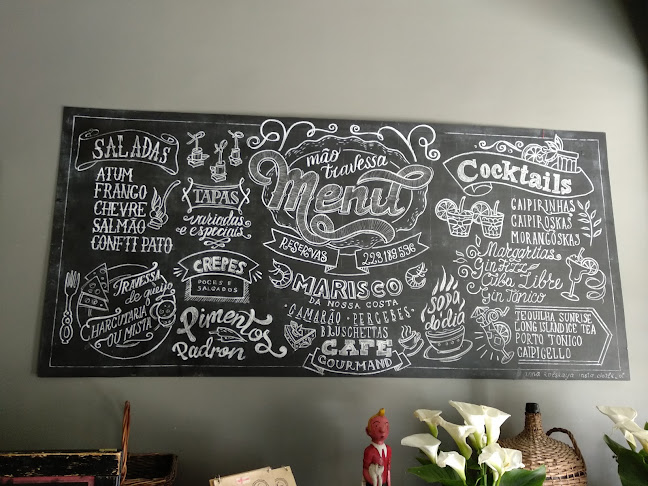 SALADAS
ATUM
FRANGO
CHEVRE
SALMÃO
CONFIT PATO
TRAVESSA
de queijo
HARCUTARIA
OU MISTA
TAPAS
variadas
e especiais
CREPES
DOCES E
SALGADOS
Pimentos
Padron
mão
travessa
Menu
RESERVAS
223 189 536
MARISCO
DA NOSSA COSTA
CAMARÃO - PERCEBES
BRUSCHETTAS
CAFÉ
GOURMAND
sopa
do dia
Cocktails
CAIPIRINHAS
CAIPIROSKAS
MORANGOSKAS
Margaritas
Gin Fizz
Cuba Libre
Gin Tónico
TEQUILHA SUNRISE
LONG ISLAND ICE TEA
PORTO TONICO
CAIPIGELLO